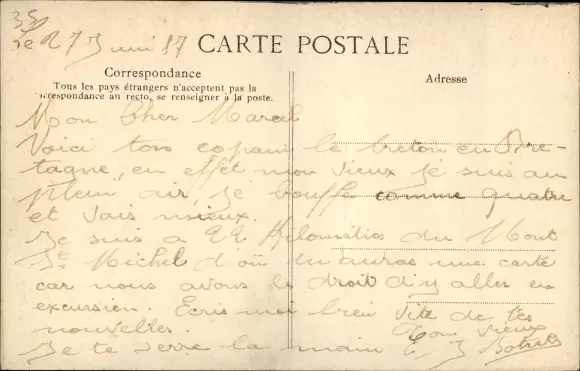 35
le 27 Juin 17
CARTE POSTALE
Correspondance
Tous les pays étrangers n'acceptent pas la
correspondance au recto, se renseigner à la poste.
Adresse
Mon Cher Marcel
Voici ton copain le breton en Bre-
tagne, en effet mon vieux je suis au
plein air, je bouffe comme quatre
et vais mieux.
Je suis a 22 Kilomètres du Mont
St Michel d'où tu auras une carte
car nous avons le droit d'y aller en
excursion. Ecris moi bien vite de tes
nouvelles. Ton vieux
Je te serre la main